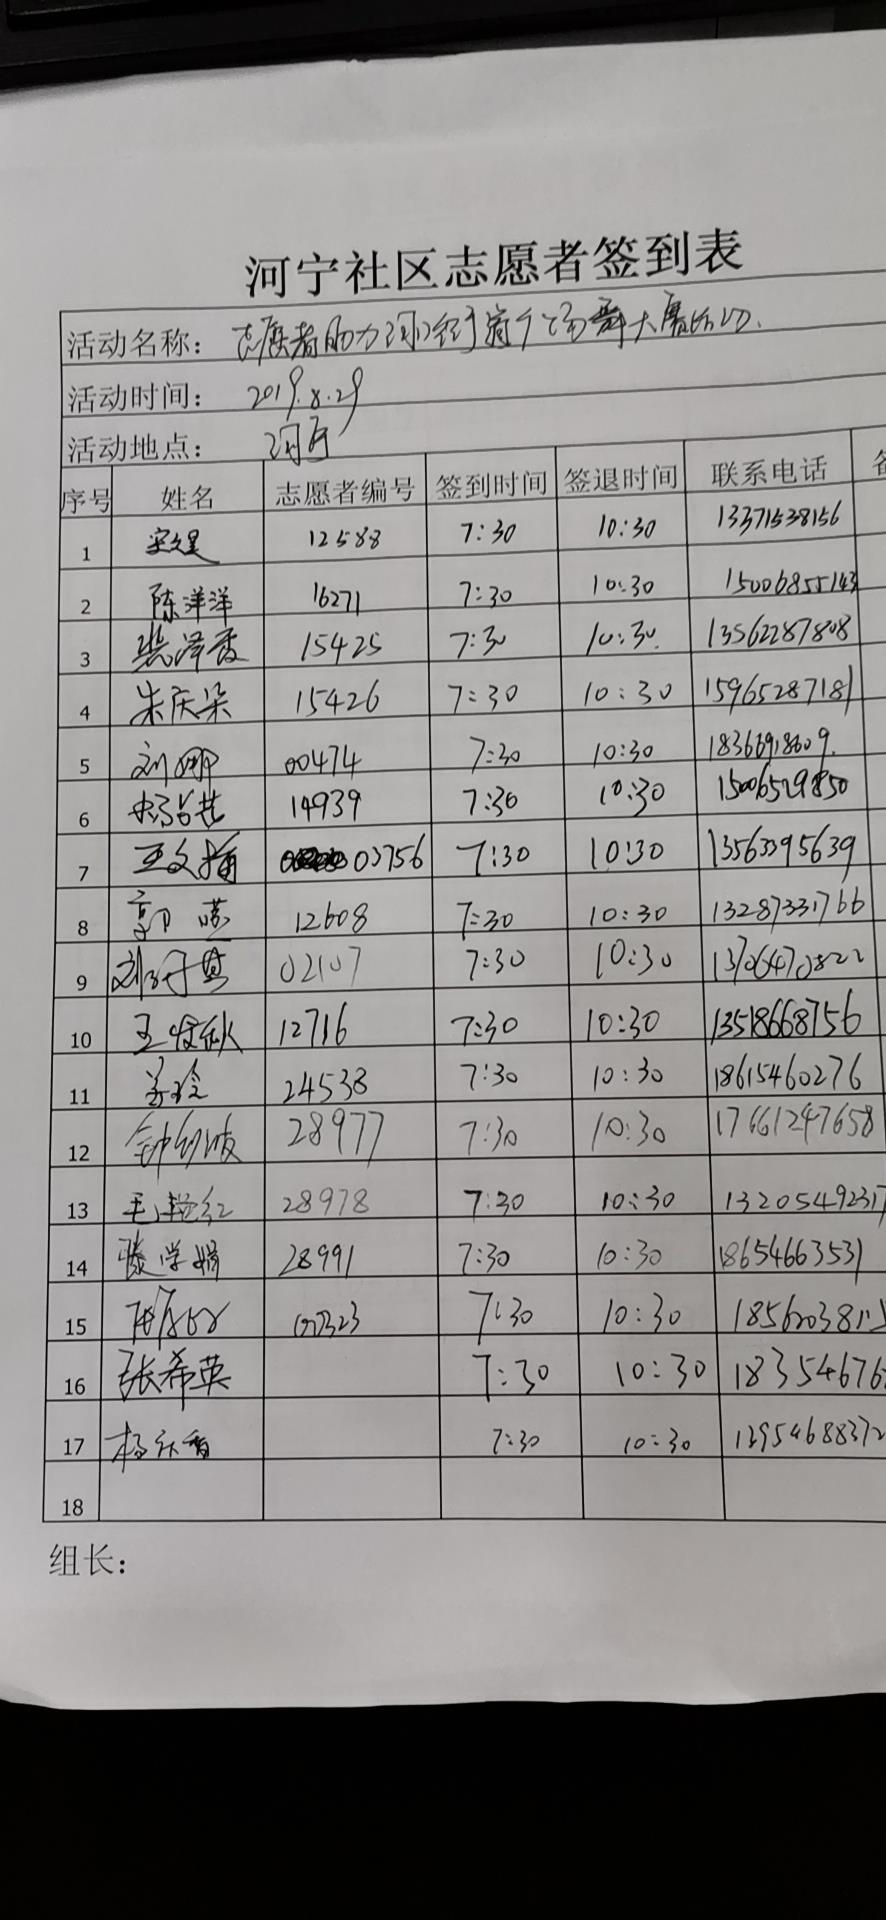 河宁社区志愿者签到表
活动名称： 志愿者助力河口 大赛活动.
活动时间： 2019.8.29
活动地点： 河宁
序号 姓名 志愿者编号 签到时间 签退时间 联系电话
1 12588 7:30 10:30 13371538156
2 陈洋洋 16271 7:30 10:30 15006855143
3 裴泽香 15425 7:30 10:30. 13562287808
4 朱庆朵 15426 7:30 10:30 15965287181
5 刘娜 00474 7:30 10:30
6 14939 7:30 10:30 15006529850
7 王文 03756 7:30 10:30 13563395639
8 郭 12608 7:30 10:30 13287331766
9 02107 7:30 10:30 13706470822
10 王俊秋 12716 7:30 10:30 13518668756
11 姜玲 24538 7:30 10:30 18615460276
12 钟 28977 7:30 10:30 17661247658
13 毛艳红 28978 7:30 10:30 13205492317
14 滕学娟 28991 7:30 10:30 18654663531
15 7:30 10:30
16 张希英 7:30 10:30 18354676
17 杨 香 7:30 10:30 13954688372
18
组长：